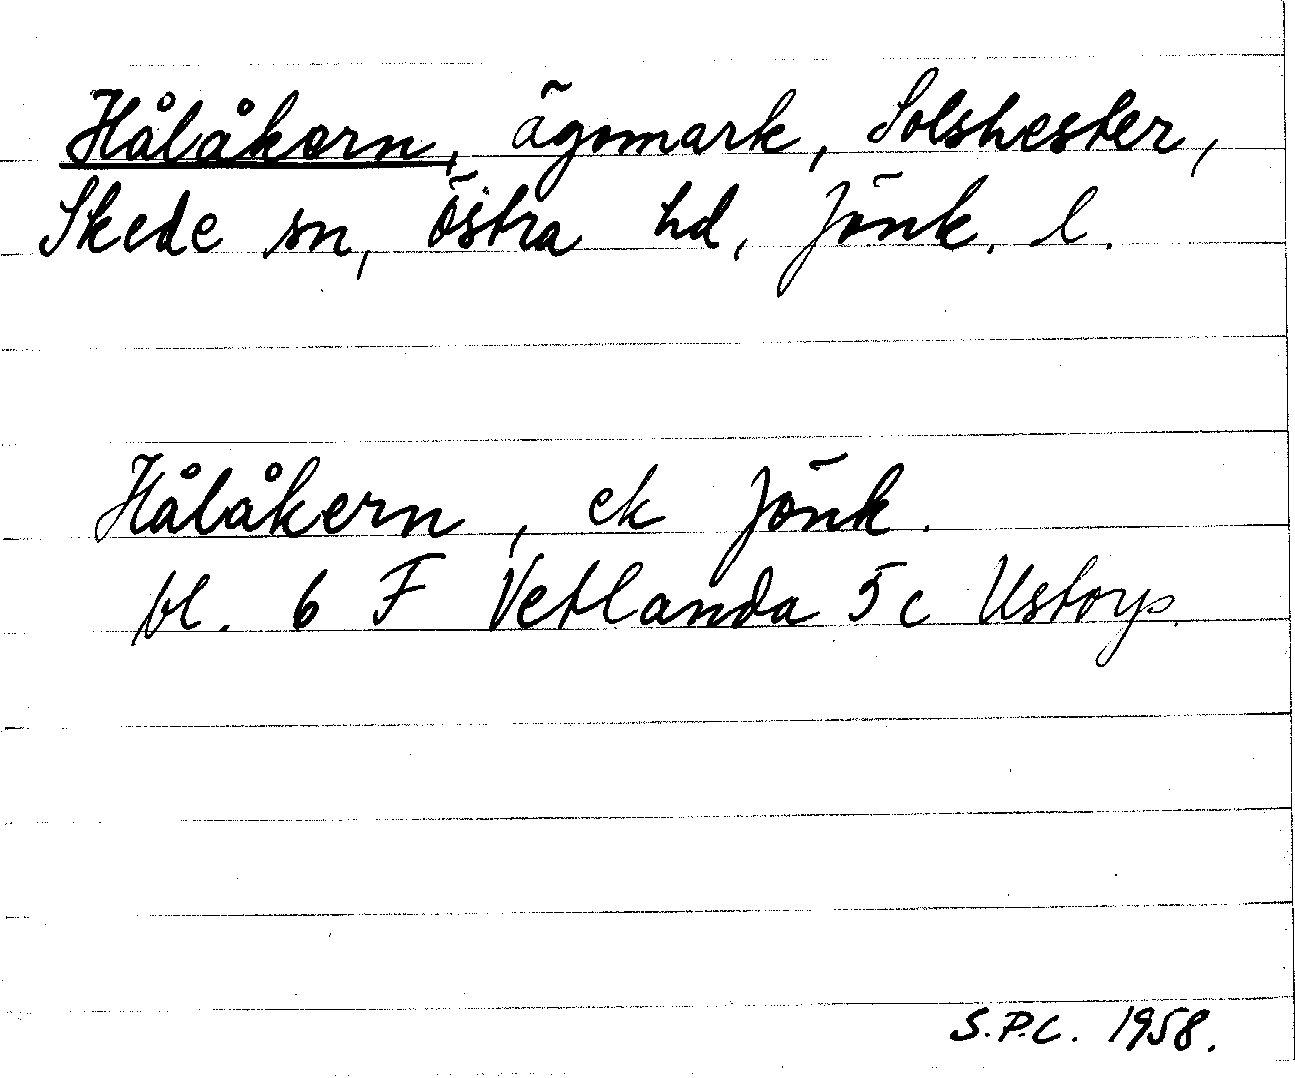 Hålåkern, ägomark, Solshester,
Skede sn, Östra hd, Jönk. l.
Hålåkern, ek Jönk.
bl. 6 F Vetlanda 5 c Ustorp.
S.P.C. 1958.